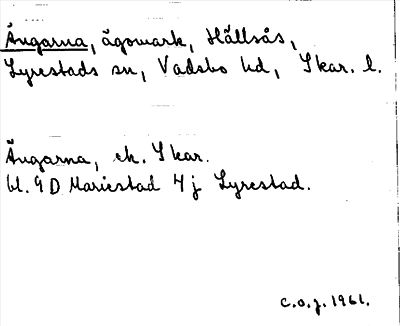 Ängarna, ägomark, Hällsås,
Lyrestads sn, Vadsbo hd, Skar. l.
Ängarna, ek. Skar.
bl. 9 D Mariestad 4 j Lyrestad.
c.o.j. 1961.